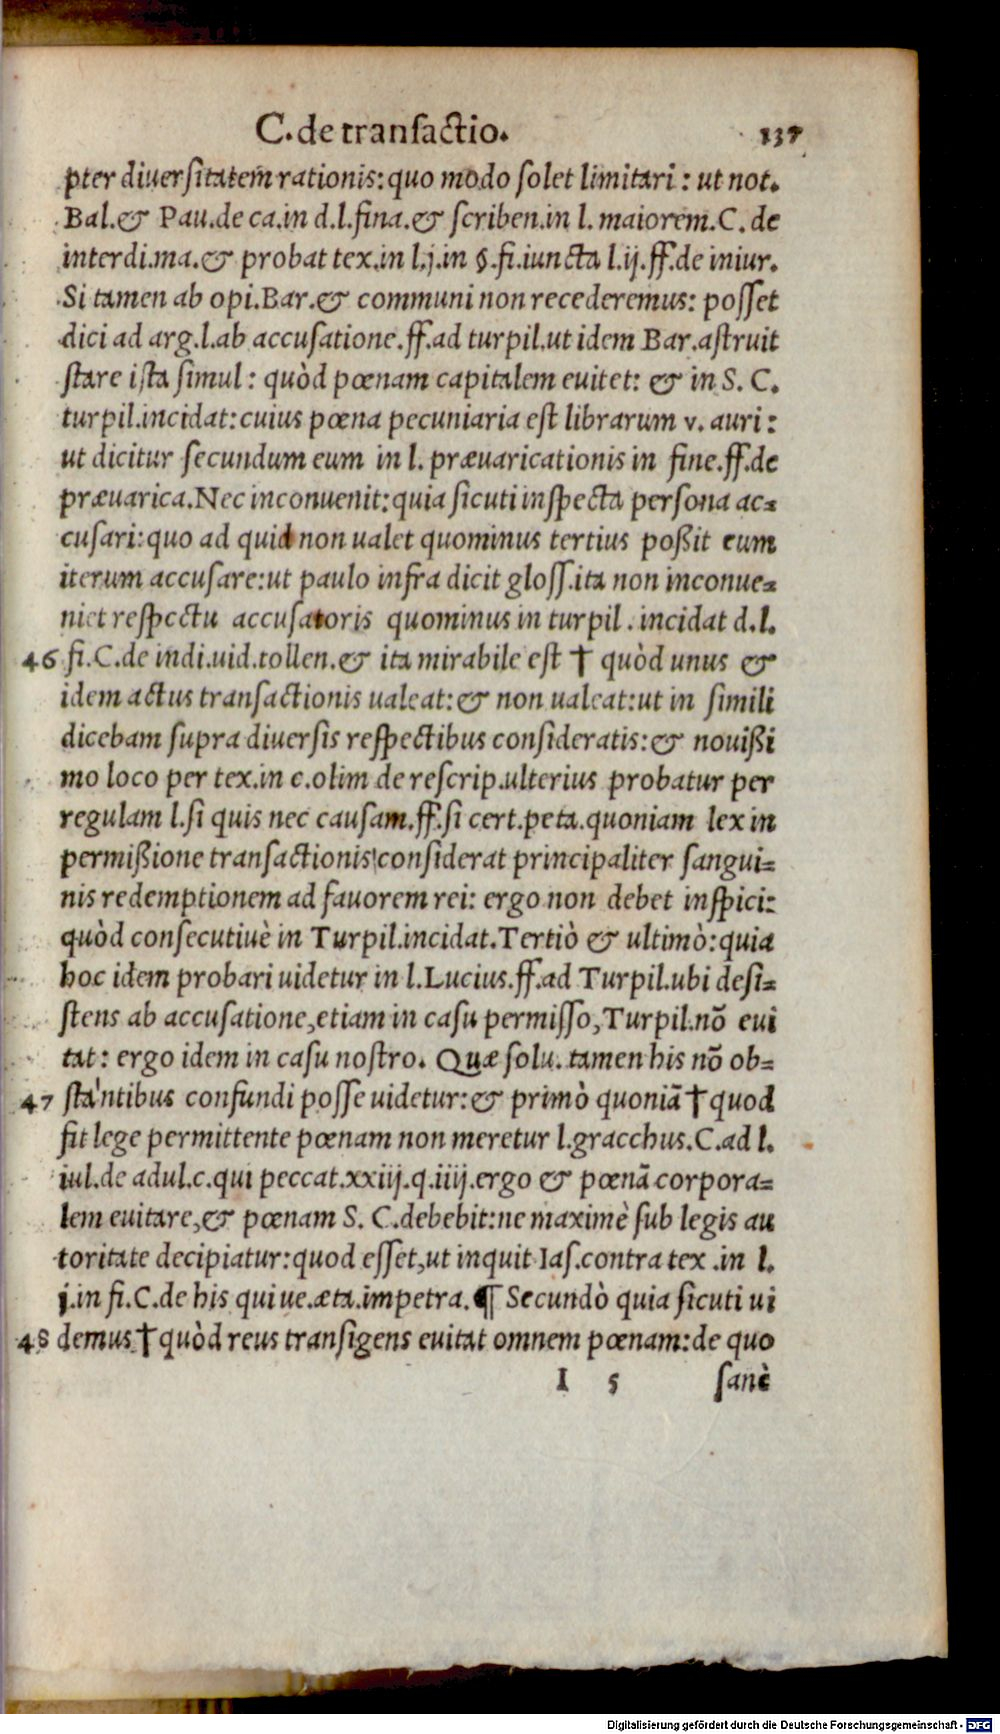 C. de transactio. 137
pter diuersitatem rationis: quo modo solet limitari: ut not.
Bal. & Pau. de ca. in d. l. fina. & scriben. in l. maiorem. C. de
interdi. ma. & probat tex. in l. j. in §. fi. iuncta l. ij. ff. de iniur.
Si tamen ab opi. Bar. & communi non recederemus: posset
dici ad arg. l. ab accusatione. ff. ad turpil. ut idem Bar. astruit
stare ista simul: quòd pœnam capitalem euitet: & in S. C.
turpil. incidat: cuius pœna pecuniaria est librarum v. auri:
ut dicitur secundum eum in l. præuaricationis in fine. ff. de
præuarica. Nec inconuenit: quia sicuti inspecta persona ac=
cusari: quo ad quid non ualet quominus tertius poßit eum
iterum accusare: ut paulo infra dicit gloss. ita non inconue=
niet respectu accusatoris quominus in turpil. incidat d. l.
46 fi. C. de indi. uid. tollen. & ita mirabile est † quòd unus &
idem actus transactionis ualeat: & non ualeat: ut in simili
dicebam supra diuersis respectibus consideratis: & nouißi
mo loco per tex. in c. olim de rescrip. ulterius probatur per
regulam l. si quis nec causam. ff. si cert. peta. quoniam lex in
permißione transactionis considerat principaliter sangui=
nis redemptionem ad fauorem rei: ergo non debet inspici:
quòd consecutiuè in Turpil. incidat. Tertiò & ultimò: quia
hoc idem probari uidetur in l. Lucius. ff. ad Turpil. ubi desi=
stens ab accusatione, etiam in casu permisso, Turpil. nõ eui
tat: ergo idem in casu nostro. Quæ solu. tamen his nõ ob=
47 stantibus confundi posse uidetur: & primò quoniã † quod
fit lege permittente pœnam non meretur l. gracchus. C. ad l.
iul. de adul. c. qui peccat. xxiij. q. iiij. ergo & pœnã corpora=
lem euitare, & pœnam S. C. debebit: ne maximè sub legis au
toritate decipiatur: quod esset, ut inquit Ias. contra tex. in l.
j. in fi. C. de his qui ue. æta. impetra. ¶ Secundò quia sicuti ui
48 demus † quòd reus transigens euitat omnem pœnam: de quo
I 5 sanè
Digitalisierung gefördert durch die Deutsche Forschungsgemeinschaft - DFG